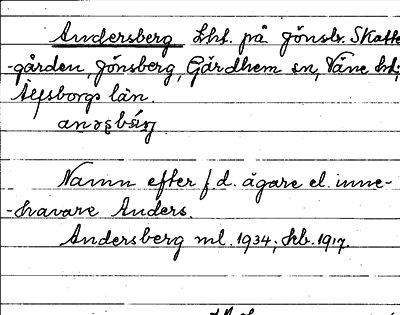 Andersberg Lht. på Jönsbr. Skatte
-gården, Jönsberg, Gärdhem sn, Väne hd;
Älfsborgs län.
Namn efter f.d. ägare el. inne-
-havare Anders.
Andersberg ml. 1934; kb. 1917.